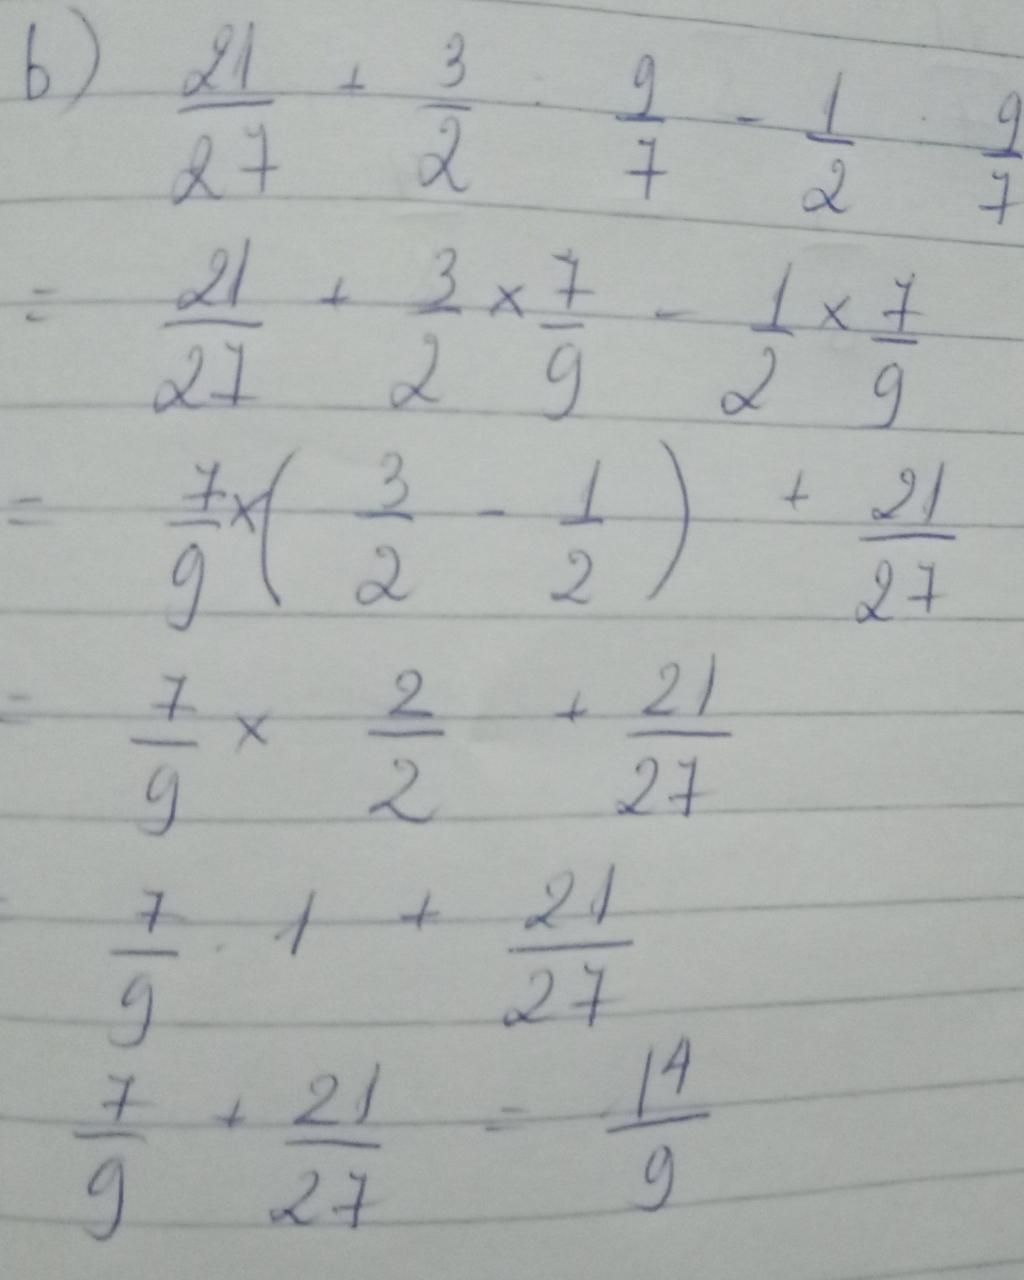 b) 21/27 + 3/2 . 9/7 - 1/2 . 9/7
= 21/27 + 3/2 × 7/9 - 1/2 × 7/9
= 7/9 × ( 3/2 - 1/2 ) + 21/27
= 7/9 × 2/2 + 21/27
= 7/9 . 1 + 21/27
7/9 + 21/27 = 14/9